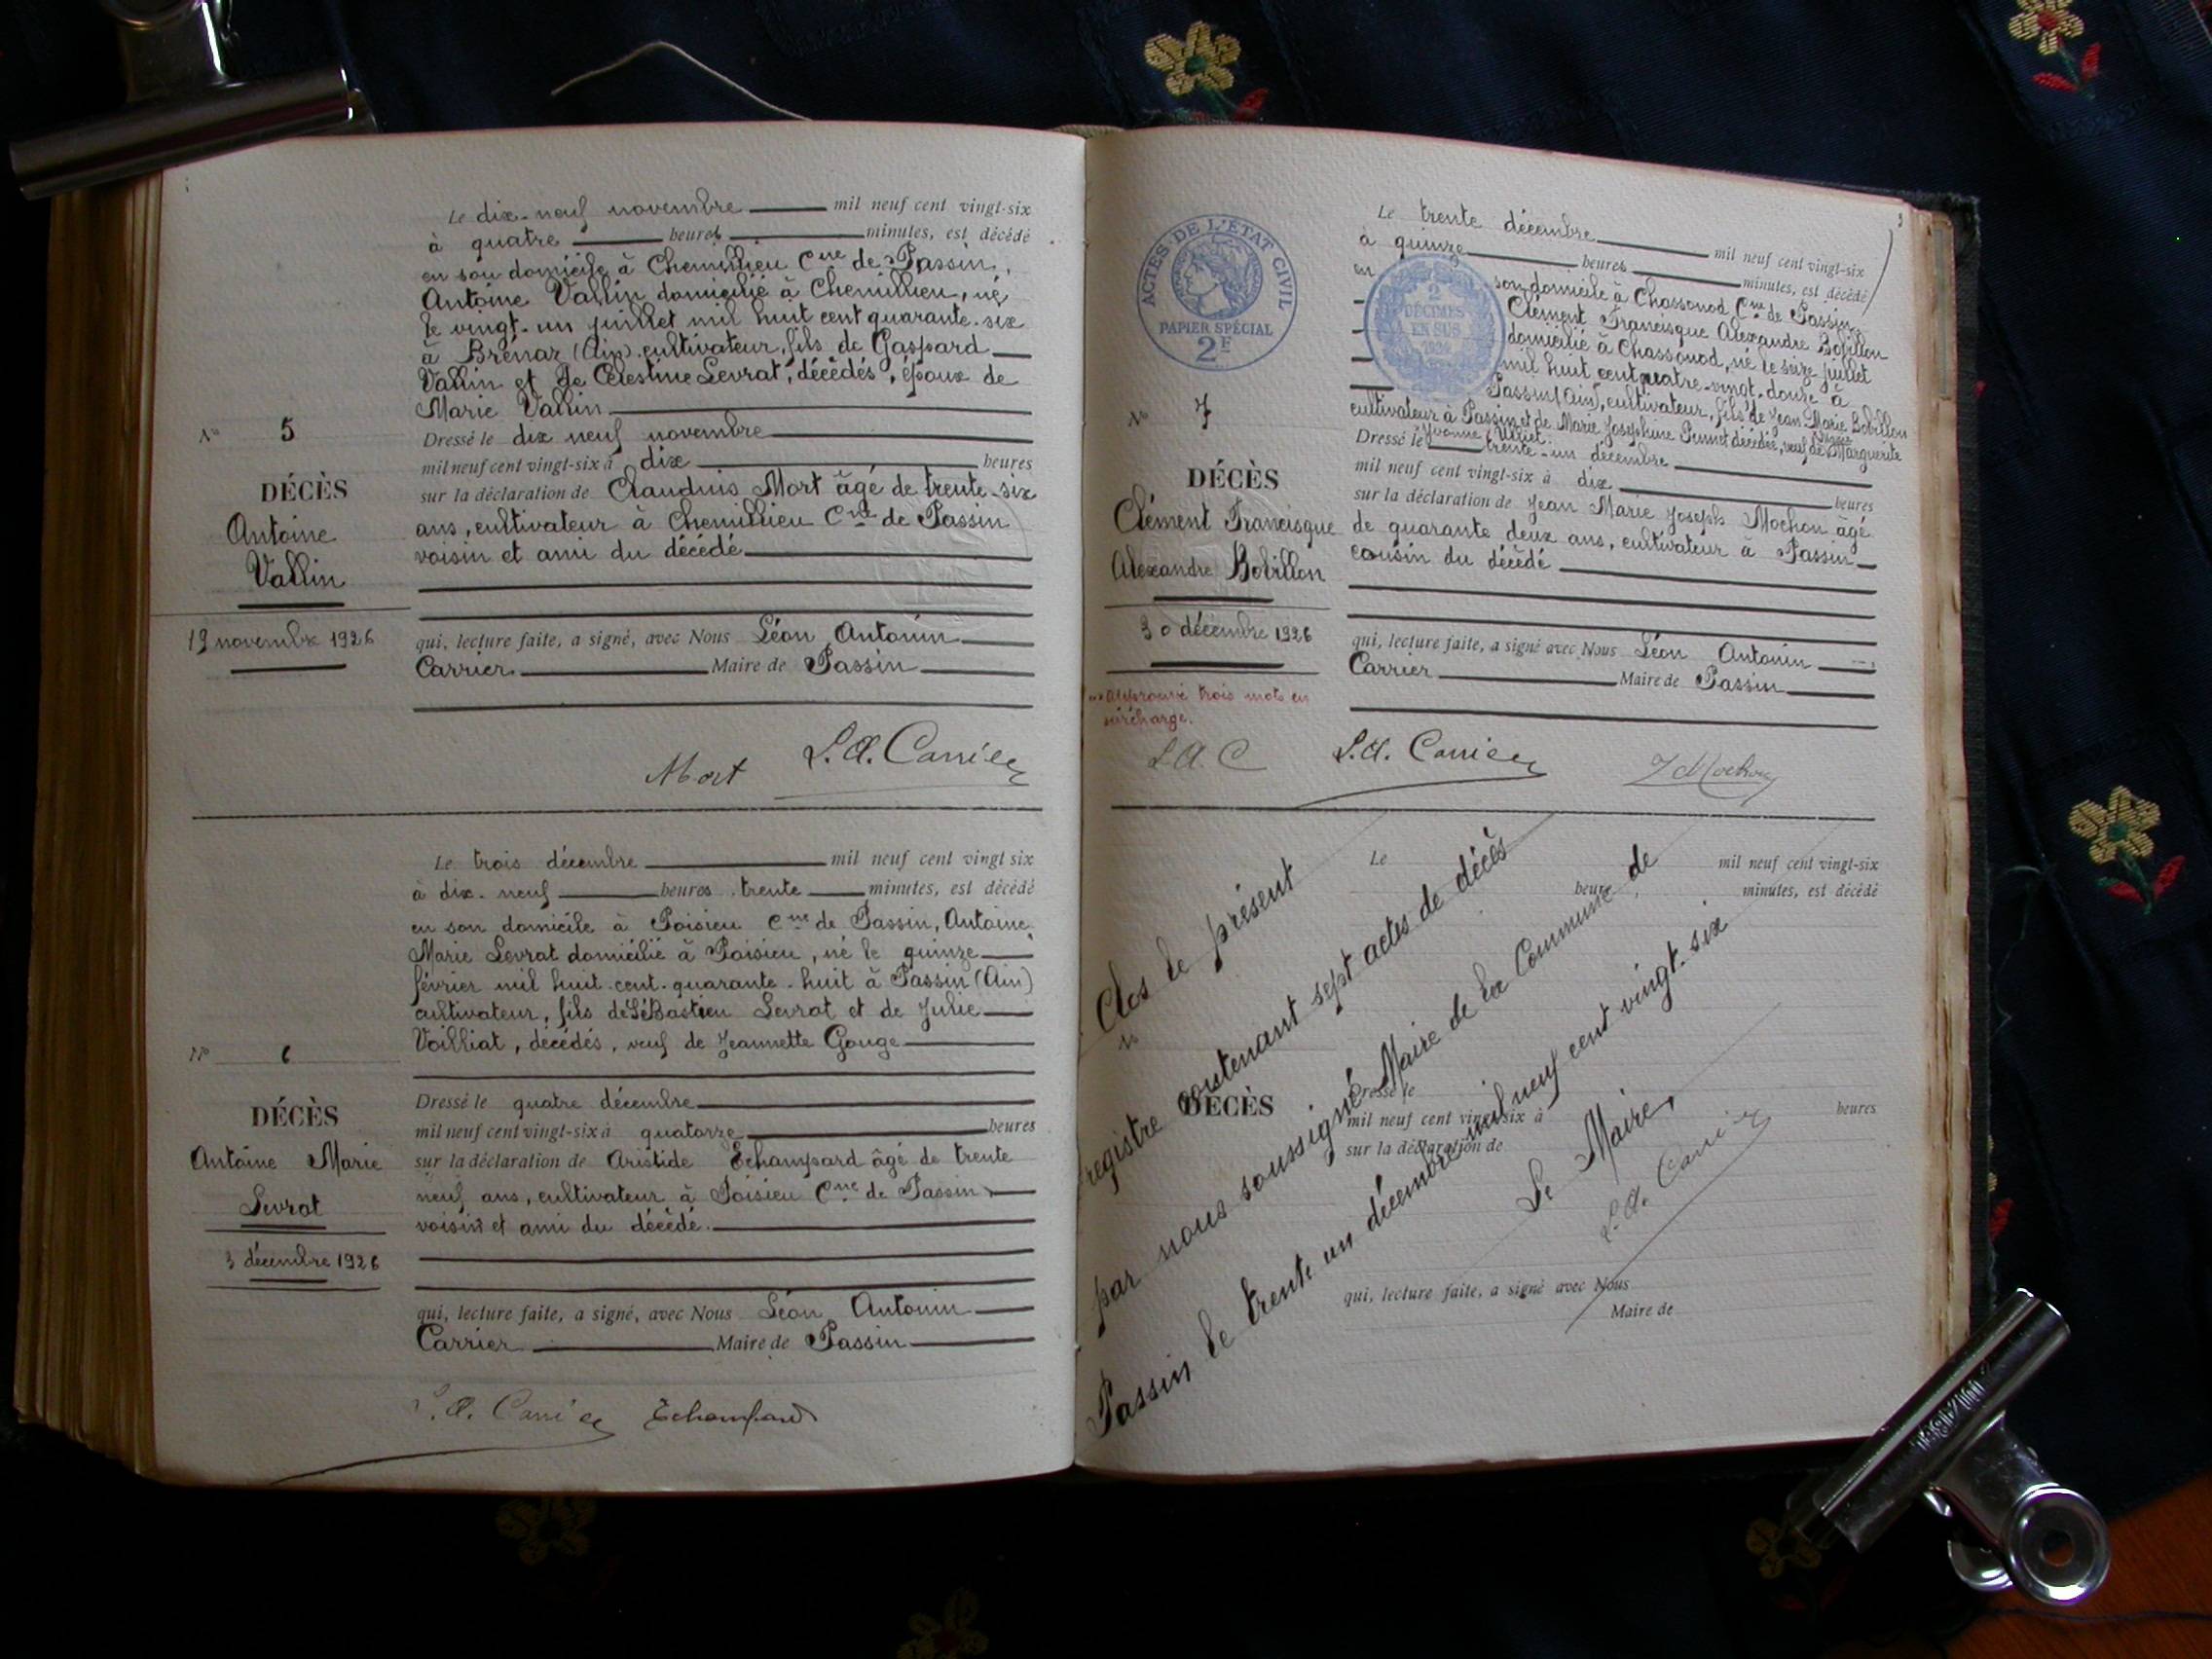 Le dix-neuf novembre mil neuf cent vingt-six
à quatre heures minutes, est décédé
en son domicile à Chemillieu Cne de Passin,
Antoine Vallin domicilié à Chemillieu, né
le vingt-un juillet mil huit cent quarante-six
à Brénaz (Ain) cultivateur, fils de Gaspard
Vallin et de Célestine Levrat, décédés, époux de
Marie Vallin
Nº 5
Dressé le dix neuf novembre
mil neuf cent vingt-six à dix heures
DÉCÈS
Antoine
Vallin
19 novembre 1926
sur la déclaration de Claudius Mort âgé de trente-six
ans, cultivateur à Chemillieu Cne de Passin
voisin et ami du décédé
qui, lecture faite, a signé, avec Nous Léon Antonin
Carrier Maire de Passin
Mort L.A. Carrier
Le trois décembre mil neuf cent vingt six
à dix-neuf heures trente minutes, est décédé
en son domicile à Poisieu Cne de Passin, Antoine
Marie Levrat domicilié à Poisieu, né le quinze
février mil huit-cent-quarante-huit à Passin (Ain)
cultivateur, fils de Sébastien Levrat et de Julie
Voilliat, décédés, veuf de Jeannette Gouge
Nº 6
DÉCÈS
Antoine Marie
Levrat
3 décembre 1926
Dressé le quatre décembre
mil neuf cent vingt-six à quatorze heures
sur la déclaration de Aristide Echampard âgé de trente
neuf ans, cultivateur à Poisieu Cne de Passin
voisin et ami du décédé.
qui, lecture faite, a signé, avec Nous Léon Antonin
Carrier Maire de Passin
L.A. Carrier Echampard
ACTES DE L'ÉTAT CIVIL
PAPIER SPÉCIAL
2F
2
DÉCIMES
EN SUS
Le trente décembre mil neuf cent vingt-six
à quinze heures minutes, est décédé
en son domicile à Chassonod Cne de Passin,
Clément Francisque Alexandre Bobillon
domicilié à Chassonod, né le seize juillet
mil huit cent quatre-vingt-douze à
Passin (Ain), cultivateur, fils de Jean Marie Bobillon
cultivateur à Passin et de Marie Josephine Punnet décédée, veuf de Marguerite
Yvonne
Nº 7
Dressé le trente-un décembre
mil neuf cent vingt-six à dix heures
DÉCÈS
Clément Francisque
Alexandre Bobillon
30 décembre 1926
Approuvé trois mots en
surcharge.
L.A.C
sur la déclaration de Jean Marie Joseph Mochon âgé
de quarante deux ans, cultivateur à Passin
cousin du décédé
qui, lecture faite, a signé avec Nous Léon Antonin
Carrier Maire de Passin
L.A. Carrier J Mochon
Le mil neuf cent vingt-six
heure minutes, est décédé
Nº
DÉCÈS
Dressé le
mil neuf cent vingt-six à heures
sur la déclaration de
qui, lecture faite, a signé avec Nous
Maire de
Clos le présent
registre contenant sept actes de décès
par nous soussigné Maire de la Commune de
Passin le trente un décembre mil neuf cent vingt-six
Le Maire,
L.A. Carrier